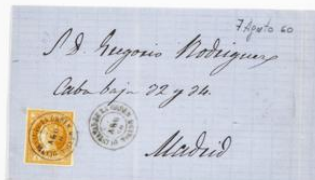 7 Agosto 60
S. D. Gregorio Rodriguez
Caba baja 22 y 24.
Madrid